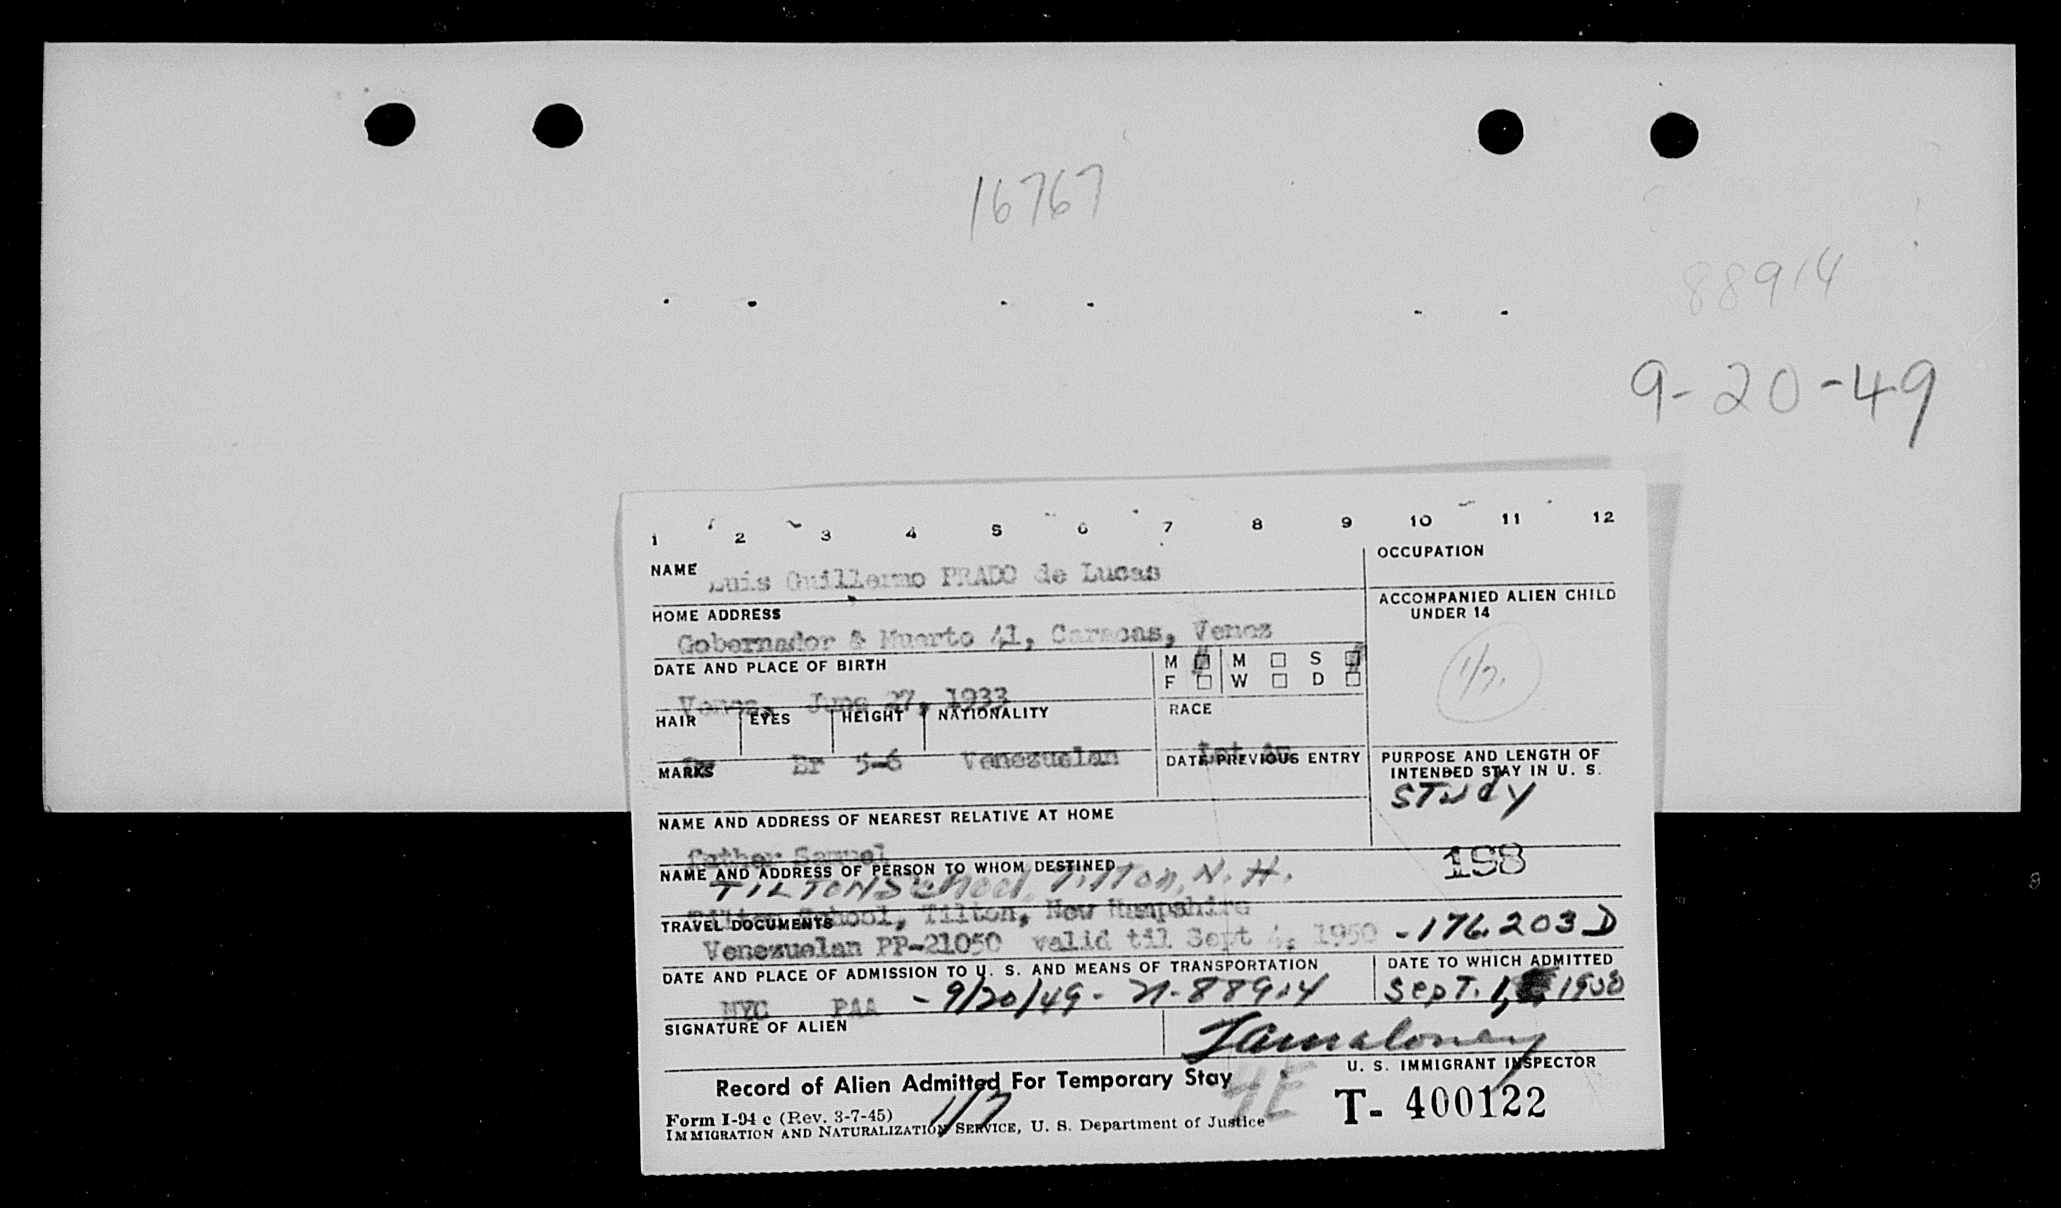 16767
88914
9-20-49
1 2 3 4 5 6 7 8 9 10 11 12
NAME Luis Guillermo PRADO de Lucas
OCCUPATION
HOME ADDRESS
Gobernador & Muerto 41, Caracas, Venez
ACCOMPANIED ALIEN CHILD
UNDER 14
DATE AND PLACE OF BIRTH
M M S
F W D
1/7.
Venez, June 27, 1933
HAIR EYES HEIGHT NATIONALITY RACE
Br Br 5-6 Venezuelan
MARKS
DATE PREVIOUS ENTRY
PURPOSE AND LENGTH OF
INTENDED STAY IN U. S.
STUDY
NAME AND ADDRESS OF NEAREST RELATIVE AT HOME
father Samuel
198
NAME AND ADDRESS OF PERSON TO WHOM DESTINED
TILTON School, Tilton, N. H.
Tilton School, Tilton, New Hampshire
TRAVEL DOCUMENTS
Venezuelan PP-21050 valid til Sept 4, 1950 - 176203 D
DATE AND PLACE OF ADMISSION TO U. S. AND MEANS OF TRANSPORTATION
DATE TO WHICH ADMITTED
NYC PAA - 9/20/49 - N-88914
Sept. 1,
SIGNATURE OF ALIEN
U. S. IMMIGRANT INSPECTOR
Record of Alien Admitted For Temporary Stay
4E
T- 400122
Form I-94 c (Rev. 3-7-45)
1/7
IMMIGRATION AND NATURALIZATION SERVICE, U. S. Department of Justice